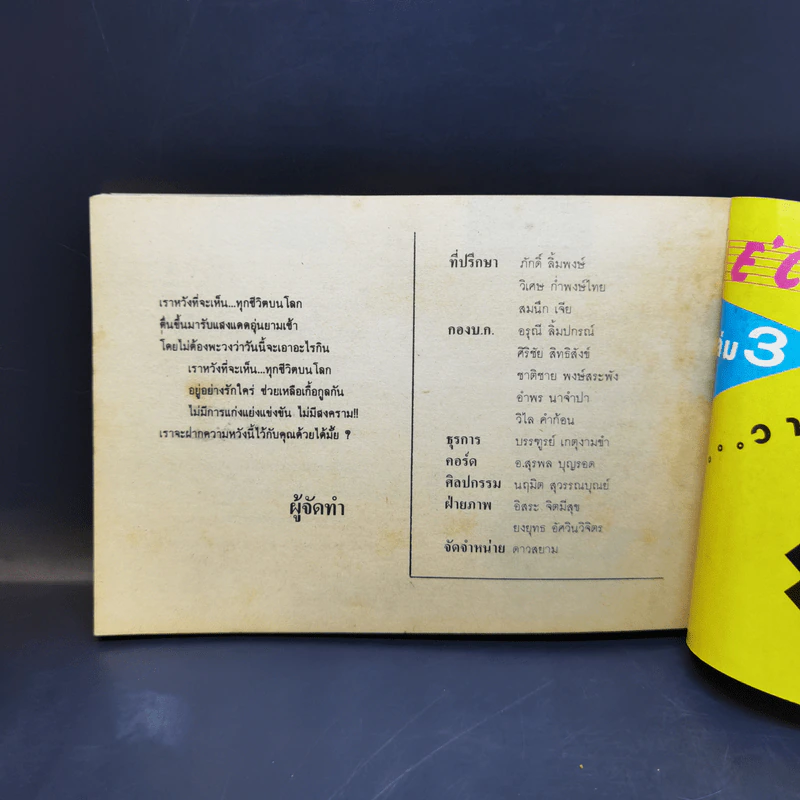 เราหวังที่จะเห็น...ทุกชีวิตบนโลก
ตื่นขึ้นมารับแสงแดดอุ่นยามเช้า
โดยไม่ต้องพะวงว่าวันนี้จะเอาอะไรกิน
เราหวังที่จะเห็น...ทุกชีวิตบนโลก
อยู่อย่างรักใคร่ ช่วยเหลือเกื้อกูลกัน
ไม่มีการแก่งแย่งแข่งขัน ไม่มีสงคราม!!
เราจะฝากความหวังนี้ไว้กับคุณด้วยได้มั้ย ?
ผู้จัดทำ
ที่ปรึกษา ภักดิ์ ลิ้มพงษ์
วิเศษ ก่ำพงษ์ไทย
สมนึก เจีย
กองบ.ก. อรุณี ลิ้มปกรณ์
ศิริชัย สิทธิสังข์
ชาติชาย พงษ์สระพัง
อำพร นาจำปา
วิไล คำก้อน
ธุรการ บรรฑูรย์ เกตุงามขำ
คอร์ด อ.สุรพล บุญรอด
ศิลปกรรม นฤมิต สุวรรณบุณย์
ฝ่ายภาพ อิสระ จิตมีสุข
ยงยุทธ อัศวินวิจิตร
จัดจำหน่าย ดาวสยาม
3